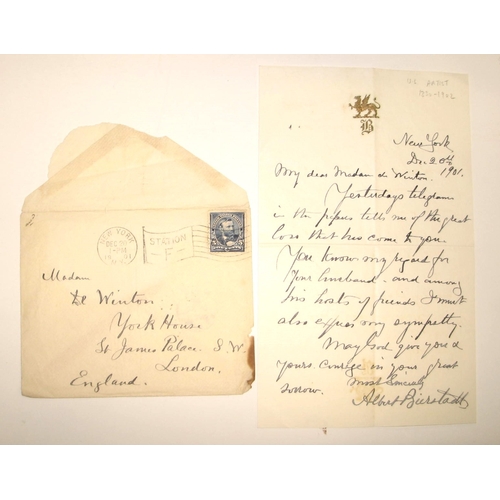 NEW YORK
STATION
F
Madam
De Winton
York House
St James Palace. S.W.
London,
England.
B
New York
Dec 20th
1901.
My dear Madam de Winton.
Yesterdays telegram
in the papers tells me of the great
loss that has come to you.
You know my regard for
Your husband. and among
his hosts of friends I must
also express my sympathy.
May God give you &
yours. courage in your great
sorrow.
Most Sincerely
Albert Bierstadt